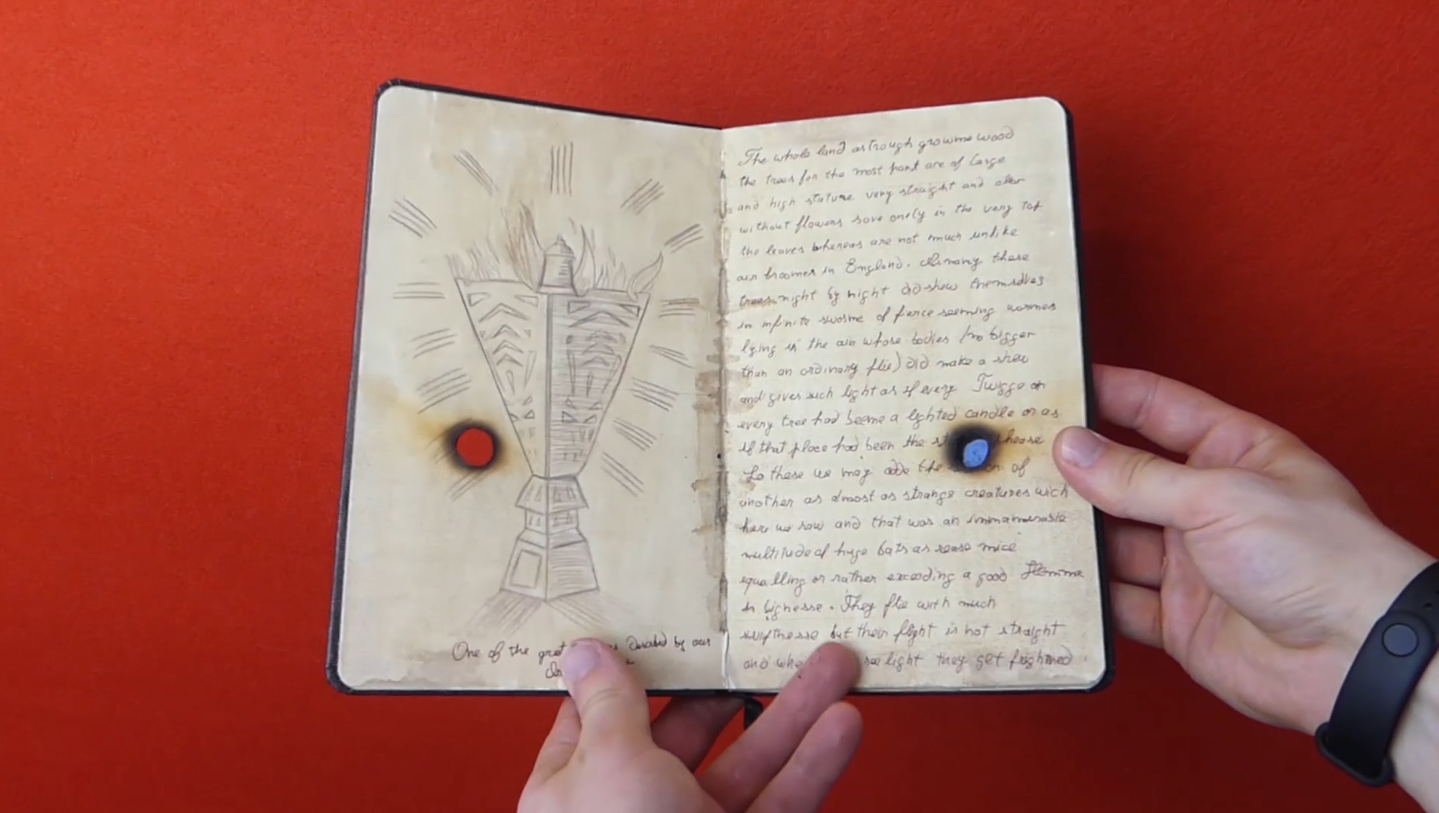 One of the gret by our
The whole land astrough growme wood
the trees for the most part are of large
and high stature very straight and cler
without flowers save onely in the very top
the leaves whereas are not much unlike
our broomes in England. Among these
trees night by night did shew themselves
in infinite sworme of fierce seeming wormes
lying in the air whose bodies (no bigger
than an ordinary flie) did make a shew
and gives such light as if every Twigge on
every tree had beene a lighted candle or as
if that place had been the
To these we may adde the of
another as almost as strange creatures wich
here we saw and that was an innumerable
multitude of huge bats as reare mice
equalling or rather exceeding a good Hemme
in bignesse. They flie with much
swiftnesse but their flight is not straight
and light they get frightned